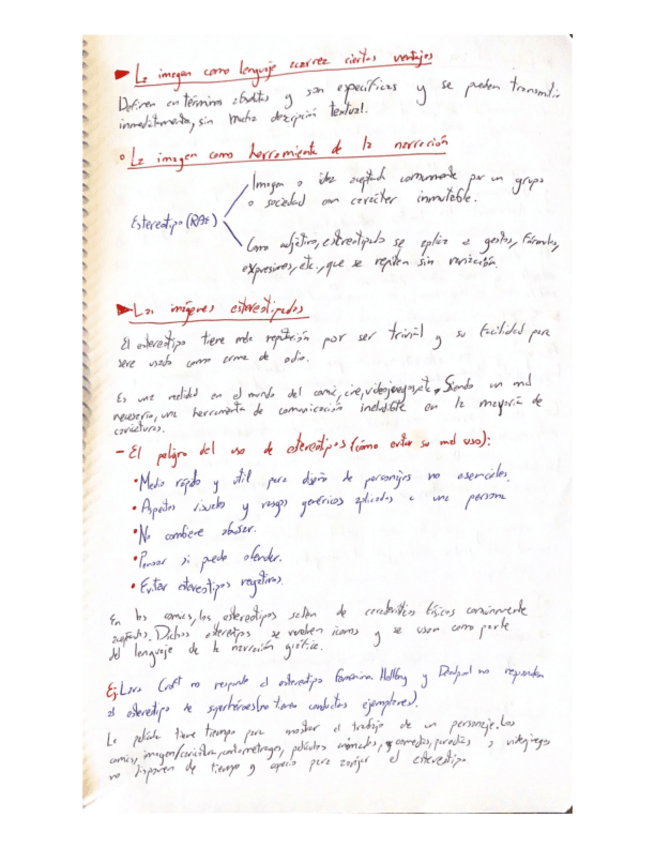 La imagen como lenguaje acarrea ciertas ventajas
Definen en términos absolutos y son específicas y se pueden transmitir
inmediatamente, sin mucha descripción textual.
La imagen como herramienta de la narración
Imagen o idea aceptada comunmente por un grupo
o sociedad con carácter inmutable.
Estereotipo (RAE)
Como adjetivo, estereotipado se aplica a gestos, fórmulas,
expresiones, etc., que se repiten sin variación.
Las imágenes estereotipadas
El estereotipo tiene mala reputación por ser trivial y su facilidad para
ser usado como arma de odio.
Es una realidad en el mundo del comic, cine, videojuegos, etc. Siendo un mal
necesario, una herramienta de comunicación ineludible en la mayoría de
caricaturas.
- El peligro del uso de estereotipos (cómo evitar su mal uso):
• Medio rápido y util para diseño de personajes no esenciales.
• Aspectos visuales y rasgos genéricos aplicados a una persona
• No combiene abusar.
• Pensar si puede ofender.
• Evitar estereotipos negativos.
En los comics, los estereotipos salen de características físicas comúnmente
aceptadas. Dichos estereotipos se vuelven iconos y se usan como parte
del lenguaje de la narración gráfica.
Ej: Lara Croft no responde al estereotipo femenino. Hellboy y Deadpool no responden
al estereotipo de superhéroes (no tienen conductas ejemplares).
La película tiene tiempo para mostrar el trabajo de un personaje. Los
comics, imagen/caricatura, cortometrages, películas animadas, y comedias, parodias y videojuegos
no disponen de tiempo y espacio para el estereotipo.